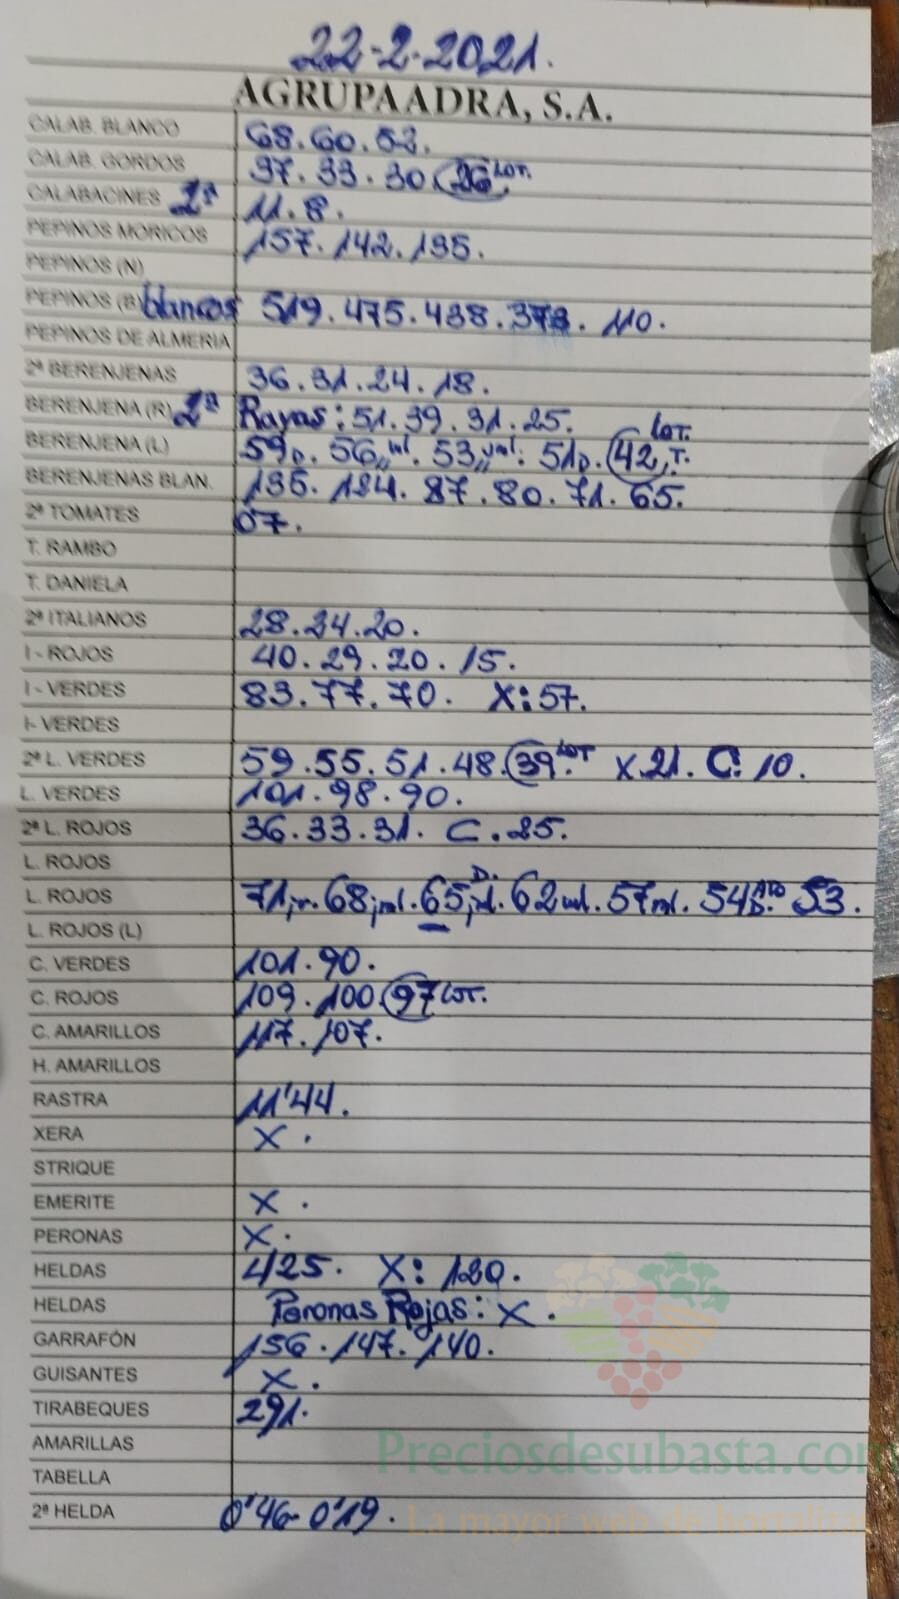 22-2-2021.
AGRUPAADRA, S.A.
CALAB. BLANCO 68.60.53.
CALAB. GORDOS 37.33.30.26 LOT.
CALABACINES 2ª 11.8.
PEPINOS MORICOS 157.142.135.
PEPINOS (N)
PEPINOS (B) blancos 519.475.438.373.110.
PEPINOS DE ALMERIA
2ª BERENJENAS 36.31.24.18.
BERENJENA (R) 2ª Rayas: 51.39.31.25.
BERENJENA (L) 59D. 56,, ml. 53,, ml: 51D. 42,, T. LOT.
BERENJENAS BLAN. 135.124.87.80.71.65.
2ª TOMATES 07.
T. RAMBO
T. DANIELA
2ª ITALIANOS 28.24.20.
I - ROJOS 40.29.20.15.
I - VERDES 83.77.70. X:57.
I- VERDES
2ª L. VERDES 59.55.51.48.39. LOT X.21. C: 10.
L. VERDES 101.98.90.
2ª L. ROJOS 36.33.31. C.25.
L. ROJOS
L. ROJOS 71 68 65 D. 62 57 54 53.
L. ROJOS (L)
C. VERDES 101.90.
C. ROJOS 109.100.97 LOT.
C. AMARILLOS 117.107.
H. AMARILLOS
RASTRA 11'44.
XERA X.
STRIQUE
EMERITE X.
PERONAS X.
HELDAS 425. X: 120.
HELDAS Peronas Rojas: X.
GARRAFÓN 156.147.140.
GUISANTES X.
TIRABEQUES 291.
AMARILLAS
TABELLA
2ª HELDA 0'46-0'19.
Preciosdesubasta.com
La mayor web de hortalizas